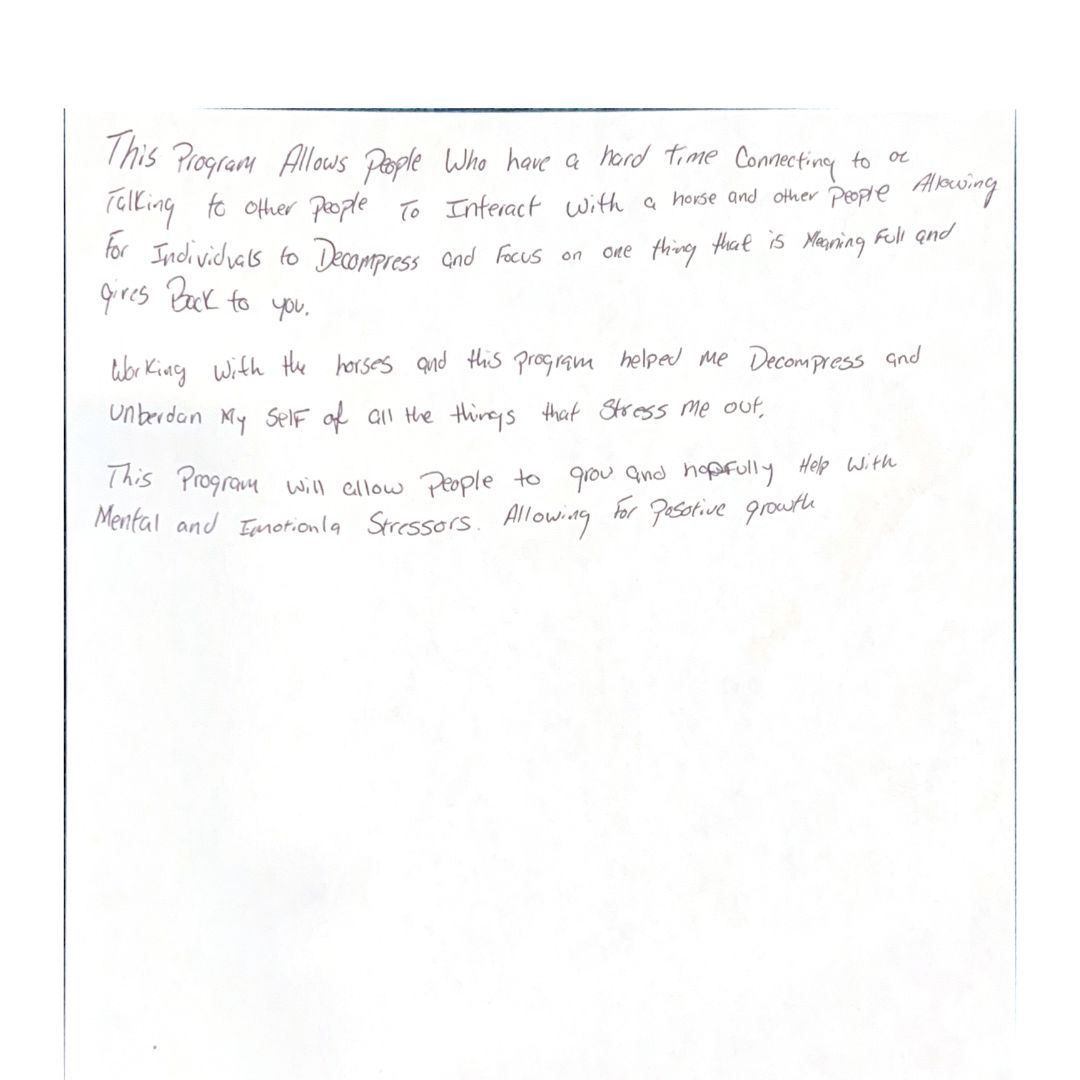 This Program Allows People Who have a hard Time Connecting to or
Talking to other People To Interact with a horse and other People Allowing
For Individuals to Decompress and Focus on one thing that is Meaning Full and
gives Back to you.
Working with the horses and this program helped me Decompress and
Unberdan My Self of all the things that Stress Me out.
This Program will allow People to grow and hopfully Help With
Mental and Emotionla Stressors. Allowing For Posotive growth